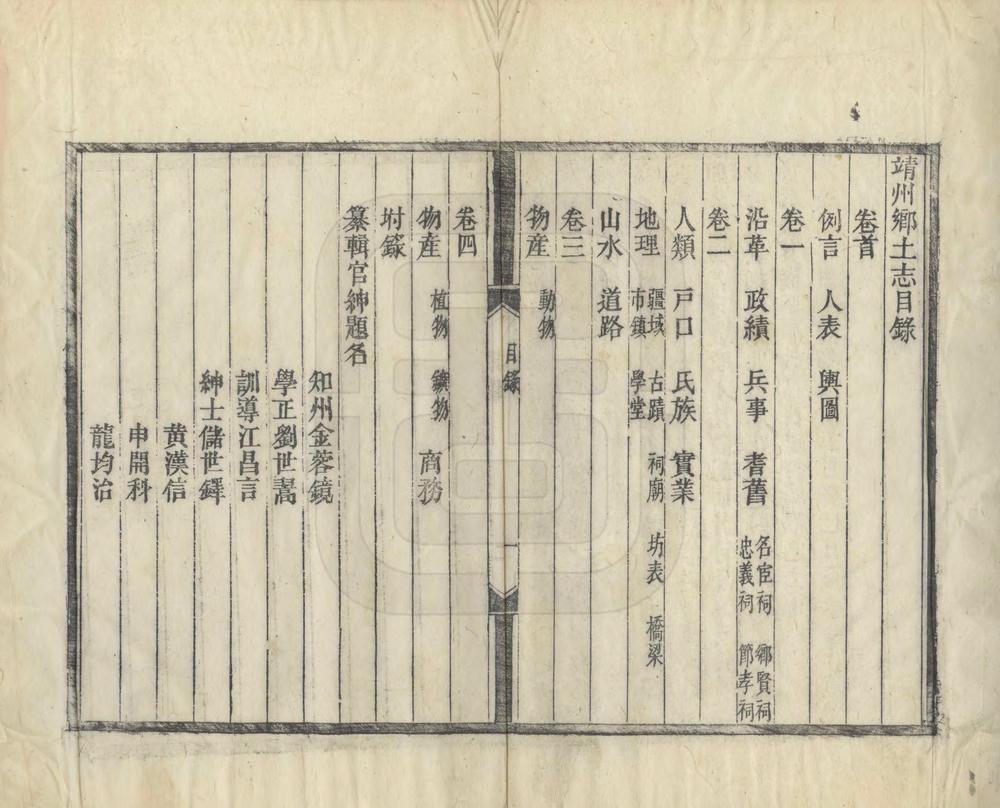 靖州鄉土志目錄
卷首
例言 人表 輿圖
卷一
沿革 政績 兵事 耆舊 名宦祠 鄉賢祠 忠義祠 節孝祠
卷二
人類 戸口 氏族 實業
地理 疆域 古蹟 祠廟 坊表 橋梁 市鎮 學堂
山水 道路
卷三
物産 動物
目錄 一
卷四
物産 植物 鑛物 商務
坿錄
纂輯官紳題名
知州金蓉鏡
學正劉世嵩
訓導江昌言
紳士儲世鐸
黄漢信
申開科
龍均治